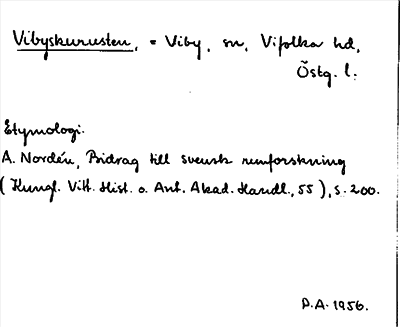 Vibyskurusten, = Viby, sn, Vifolka hd,
Östg. l.
Etymologi.
A. Nordén, Bidrag till svensk runforskning
(Kungl. Vitt. Hist. o. Ant. Akad. Handl., 55), s. 200.
D.A. 1956.